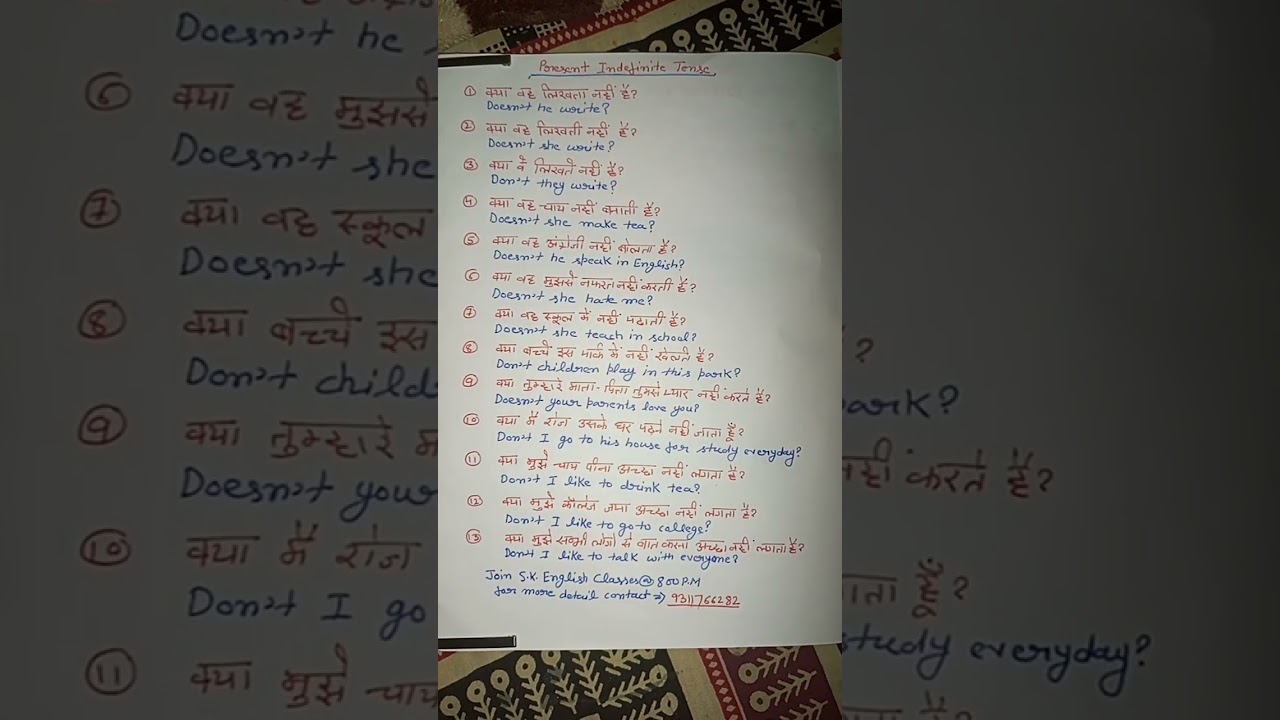 Present Indefinite Tense
① क्या वह लिखता नहीं है?
Doesn't he write?
② क्या वह लिखती नहीं है?
Doesn't she write?
③ क्या वे लिखते नहीं हैं?
Don't they write?
④ क्या वह चाय नहीं बनाती है?
Doesn't she make tea?
⑤ क्या वह अंग्रेजी नहीं बोलता है?
Doesn't he speak in English?
⑥ क्या वह मुझसे नफरत नहीं करती है?
Doesn't she hate me?
⑦ क्या वह स्कूल में नहीं पढ़ाती है?
Doesn't she teach in school?
⑧ क्या बच्चे इस पार्क में नहीं खेलते हैं?
Don't children play in this park?
⑨ क्या तुम्हारे माता-पिता तुमसे प्यार नहीं करते हैं?
Doesn't your parents love you?
⑩ क्या मैं रोज उसके घर पढ़ने नहीं जाता हूँ?
Don't I go to his house for study everyday?
⑪ क्या मुझे चाय पीना अच्छा नहीं लगता है?
Don't I like to drink tea?
⑫ क्या मुझे कॉलेज जाना अच्छा नहीं लगता है?
Don't I like to go to college?
⑬ क्या मुझे सभी लोगों से बात करना अच्छा नहीं लगता है?
Don't I like to talk with everyone?
Join S.K. English Classes @ 8:00 P.M
for more detail contact ⇒ 9311766282